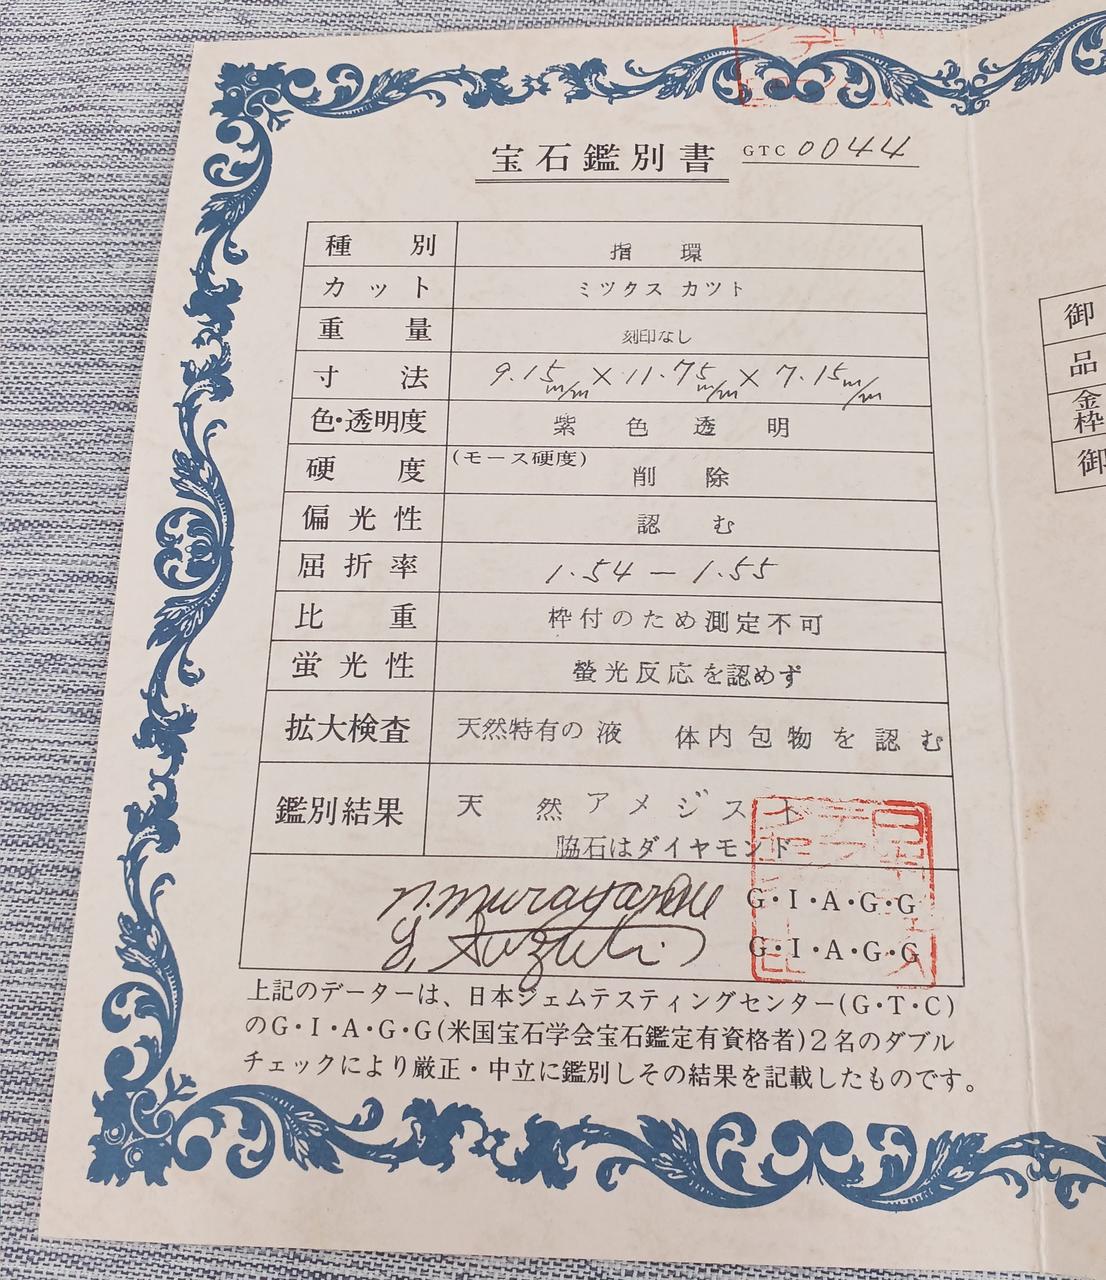 宝石鑑別書 GTC 0044
種別 指環
カット ミツクス カツト
重量 刻印なし
寸法 9.15m/m×11.75m/m×7.15m/m
色・透明度 紫色透明
硬度 (モース硬度) 削除
偏光性 認む
屈折率 1.54－1.55
比重 枠付のため測定不可
蛍光性 螢光反応を認めず
拡大検査 天然特有の液体内包物を認む
鑑別結果 天然アメジスト
脇石はダイヤモンド
G・I・A・G・G
G・I・A・G・G
上記のデーターは、日本ジェムテスティングセンター(G・T・C)
のG・I・A・G・G(米国宝石学会宝石鑑定有資格者)2名のダブル
チェックにより厳正・中立に鑑別しその結果を記載したものです。
御
品
金
枠
御